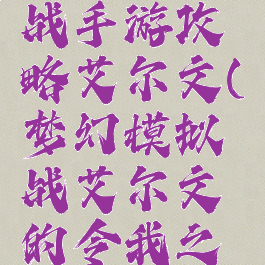 战手游攻
略艾尔文(
梦幻模拟
战艾尔文
的令我之